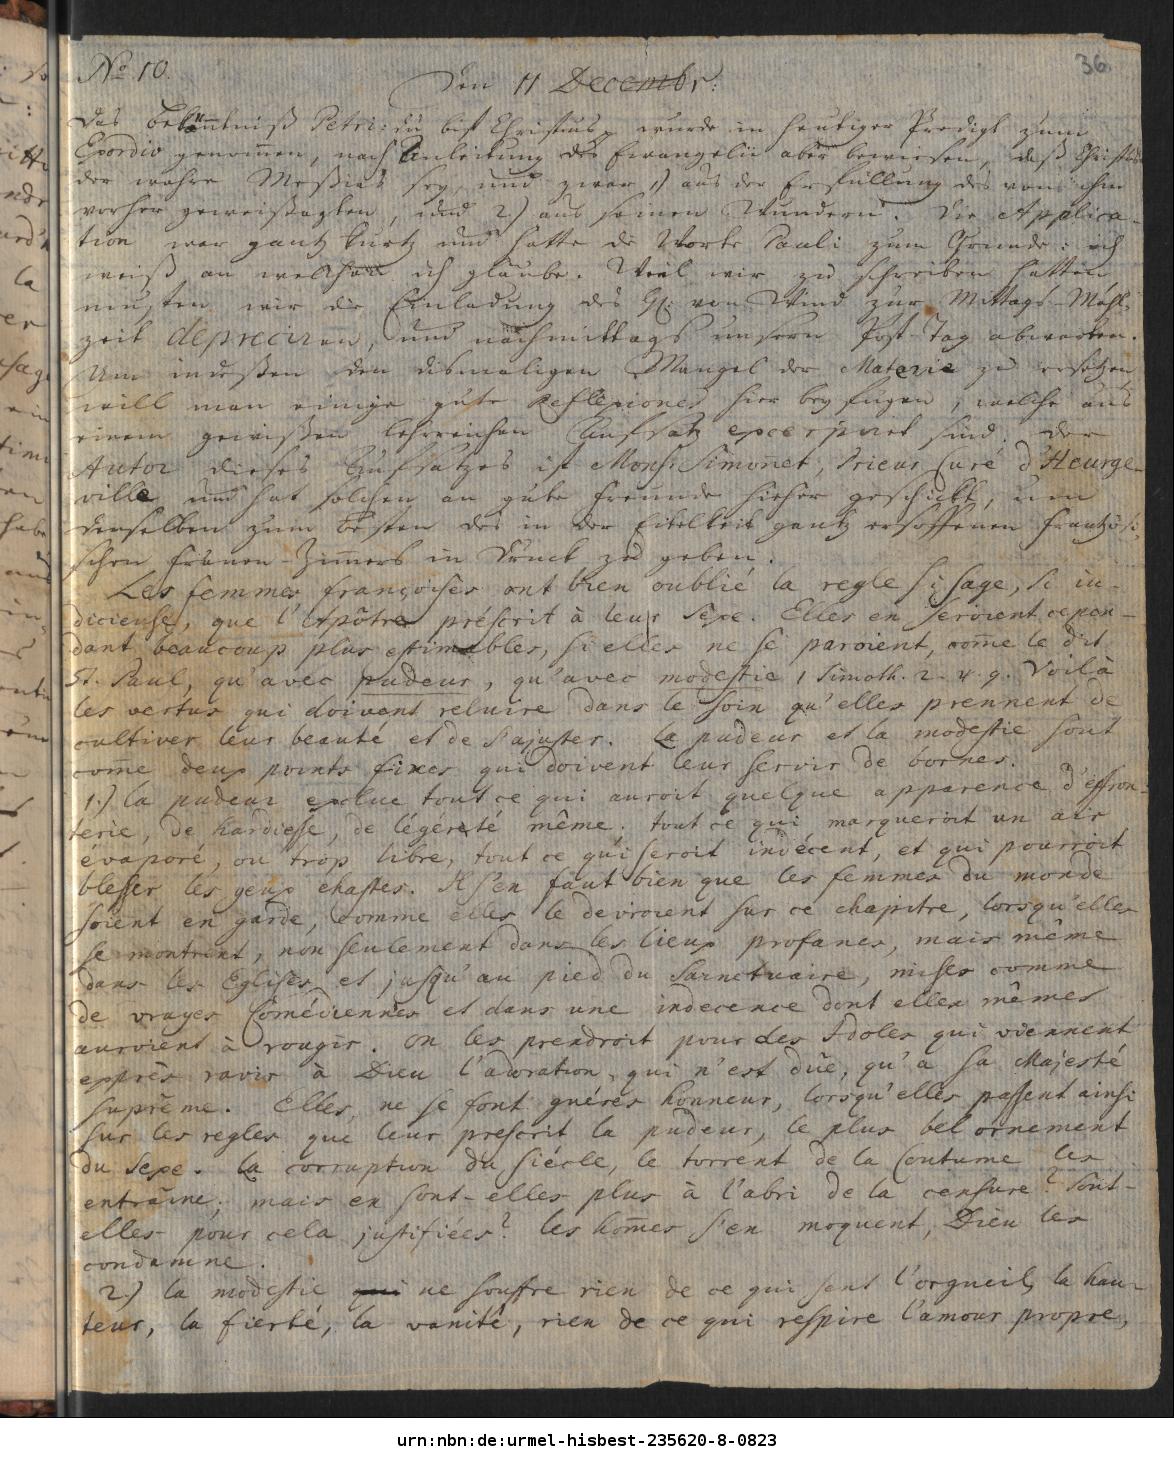 36
No 10.
Den 11 Decembr:
Das Bekänntniß Petri: du bist Christus p. wurde in heutiger Predigt zum
Exordio genom̄en, nach Anleitung des Evangelii aber bewiesen, daß Christus
der wahre Meßias sey, und zwar 1) aus der Erfüllung des von ihm
vorher geweißagten, und 2.) aus seinen Wundern. Die Applica-
tion war gantz kurtz und hatte die Worte Pauli zum Grunde: ich
weiß an welchen ich glaube. Weil wir zu schreiben hatten
musten wir die Einladung des H. von Wind zur Mittags-Mahl-
zeit depreciren, und nachmittags unsern Post-Tag abwarten.
Um indeßen den dismaligen Mangel der Materie zu ersetzen
will man einige gute Reflexiones hier bey fügen, welche aus
einem gewißen lehrreichen Aufsatz excerpiret sind. Der
Autor dieses Aufsatzes ist Monsr. Simonet, Prieur Curé d'Heurge-
ville und hat solchen an gute Freunde hieher geschickt, um
denselben zum Besten des in der Eitelkeit gantz ersoffenen Frantzösi-
schen Frauen-Zim̄ers in Druck zu geben.
Les femmes françoises ont bien oublié la regle si sage, si iu-
dicieuse, que l'Apôtre préscrit à leur Sexe. Elles en seroient cepen-
dant beaucoup plus estimables, si elles ne se paroient, com̄e le dit
St. Paul, qu'avec pudeur, qu'avec modestie 1 Timoth. 2. v. 9. Voilà
les vertus qui doivent reluire dans le soin qu'elles prennent de
cultiver leur beauté et de s'ajuster. La pudeur et la modestie sont
com̄e deux points fixes qui doivent leur servir de bornes.
1.) la pudeur exclue tout ce qui auroit quelque apparence d'effron-
terie, de hardiesse, de légéreté même: tout ce qui marqueroit un air
évaporé, ou trop libre, tout ce qui seroit indécent, et qui pourroit
blesser les yeux chastes. Il s'en faut bien que les femmes du monde
soient en garde, comme elles le devroient sur ce chapitre, lorsqu'elles
se montrent, non seulement dans les lieux profanes, mais même
dans les Eglises, et jusqu'au pied du Sanctuaire, mises comme
de vrayes Comédiennes et dans une indecence dont elles mêmes
auroient à rougir. On les prendroit pour des Idoles qui viennent
exprès ravir à Dieu l'adoration, qui n'est dûe, qu'a sa Majesté
suprême. Elles, ne se font guéres honneur, lorsqu'elles passent ainsi
sur les regles que leur prescrit la pudeur, le plus bel ornement
du Sexe. La corruption du siécle, le torrent de la Coutume les
entraine; mais en sont-elles plus à l'abri de la censure? Sont-
elles pour cela justifiées? les hom̄es s'en moquent, Dieu les
condamne.
2.) la modestie qui ne souffre rien de ce qui sent l'orgueil, la hau-
teur, la fierté, la vanité, rien de ce qui respire l'amour propre,
urn:nbn:de:urmel-hisbest-235620-8-0823